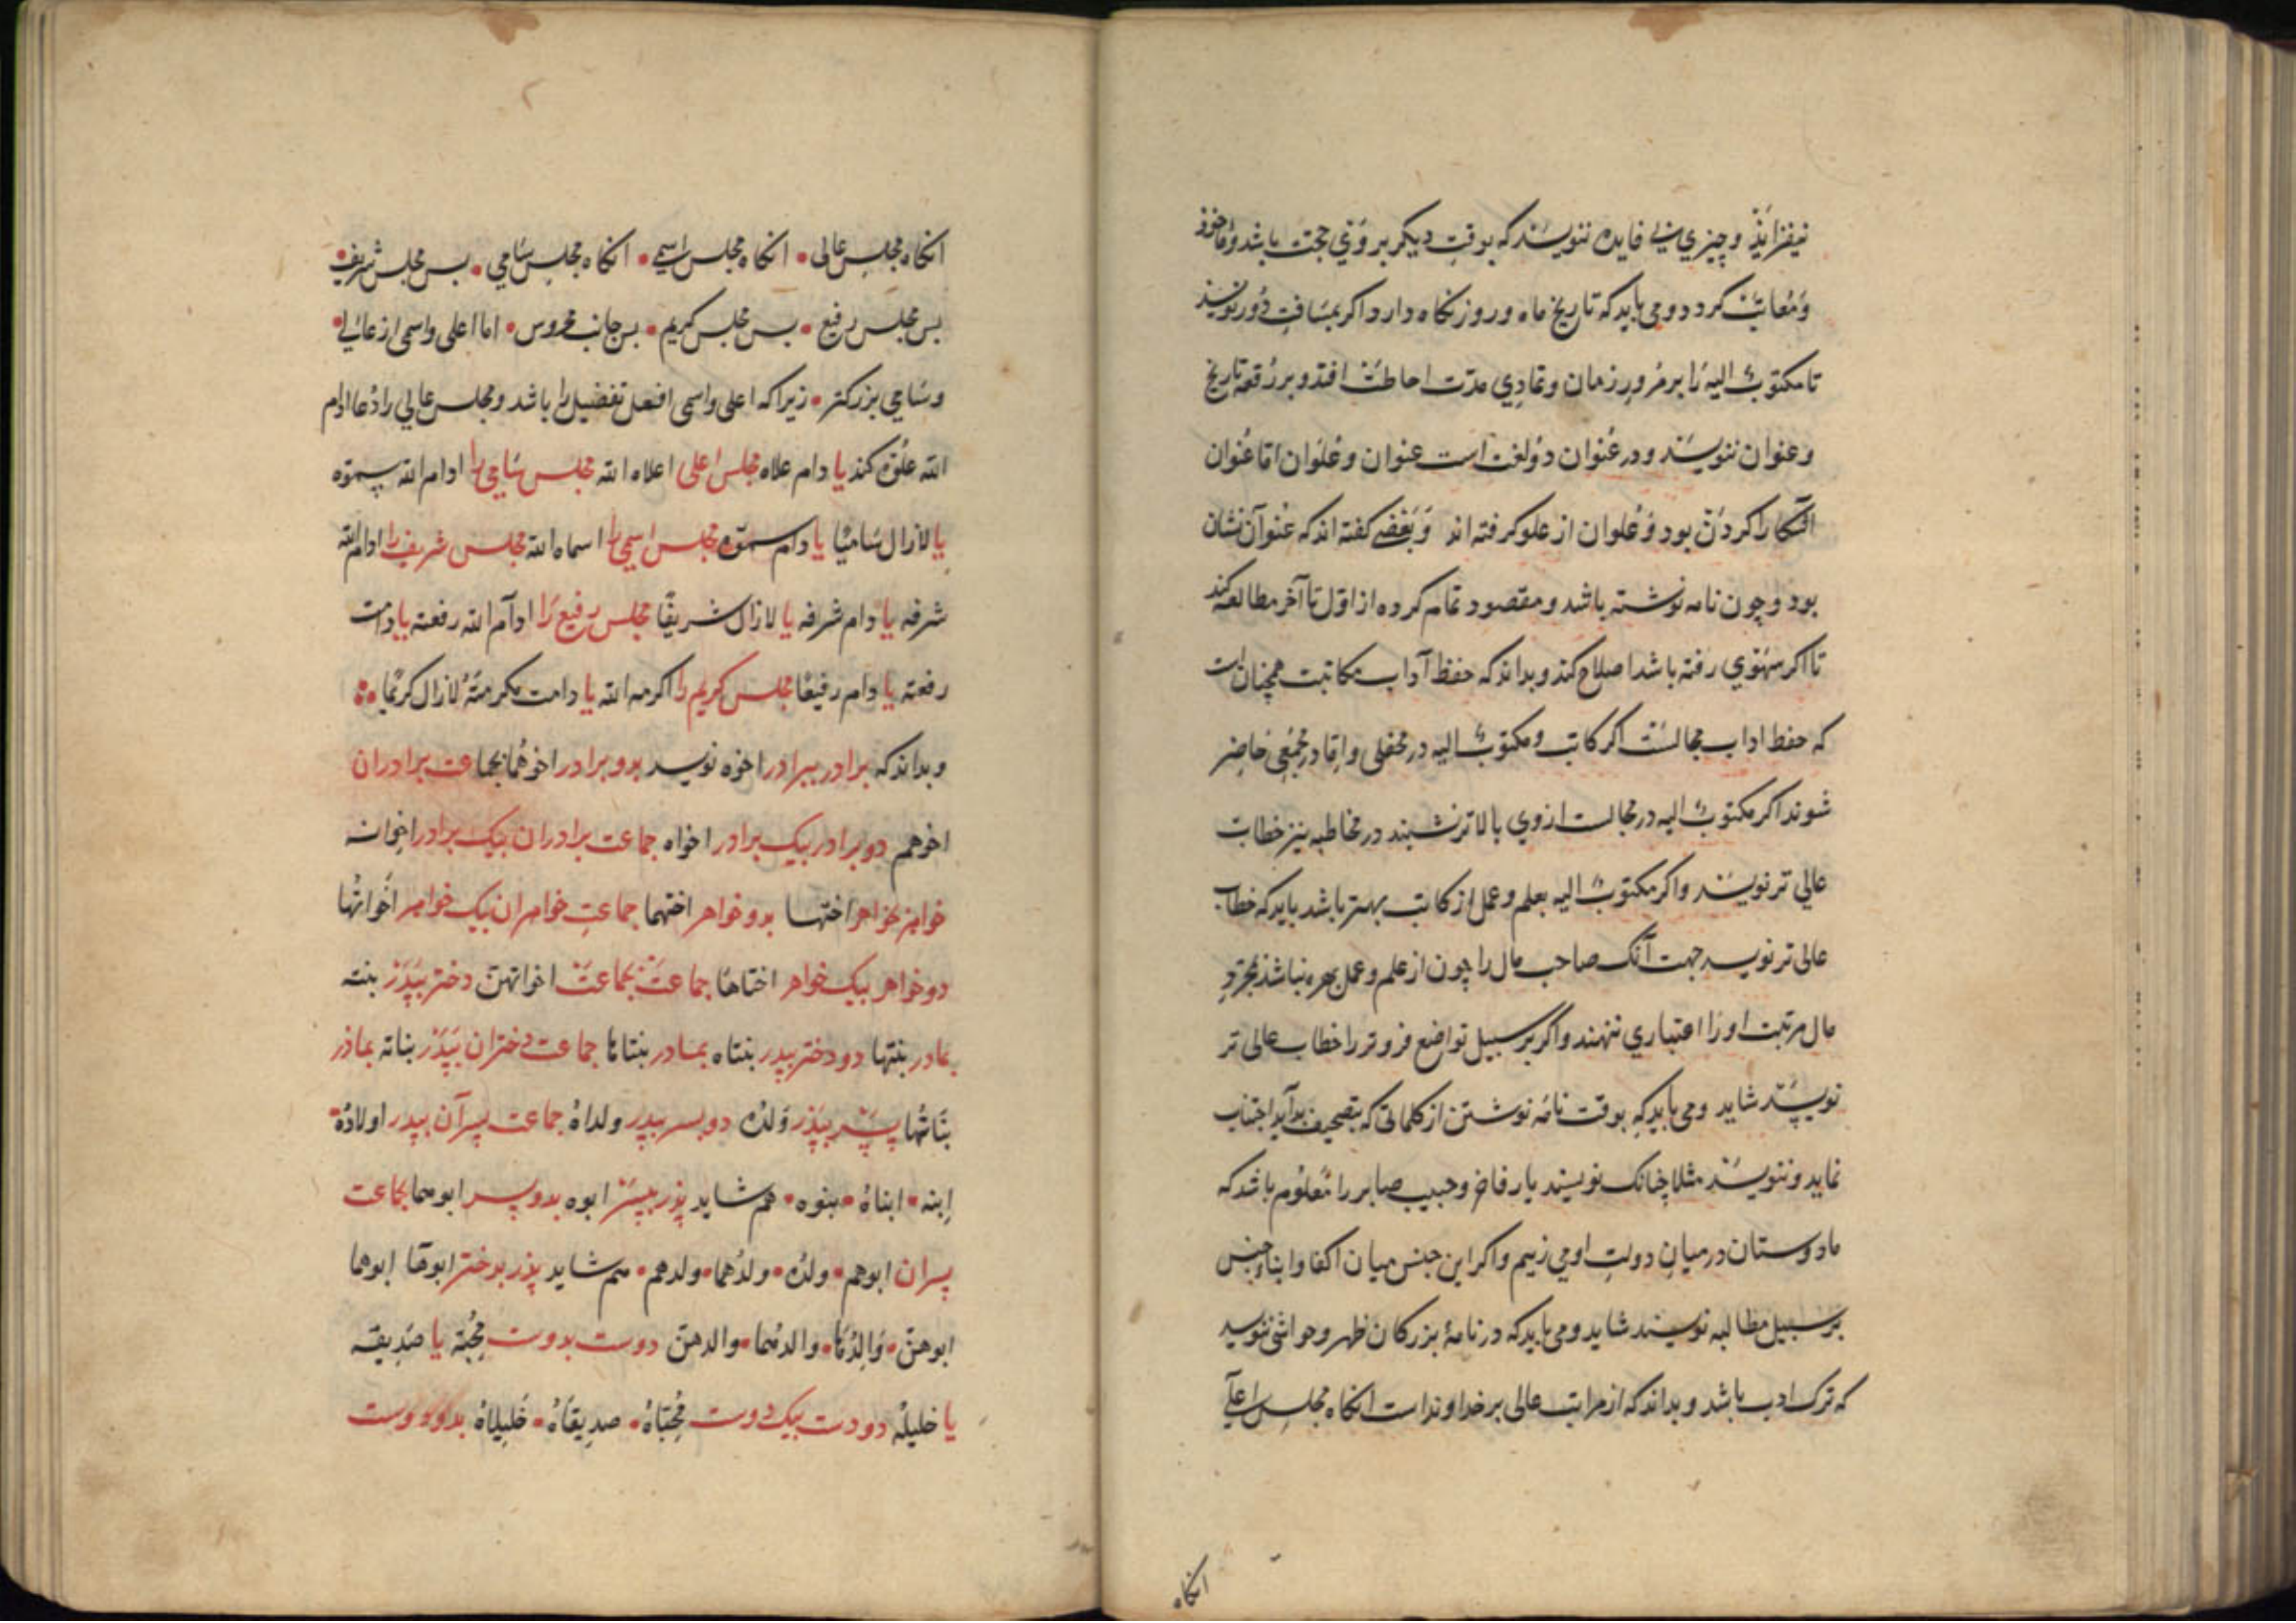 نیفزایذ و چیزی بی فایده ننویسند که بوقت دیکر بر وی حجت باشد و ماخوذ
و معاتب کردد و می باید که تاریخ ماه و روز نکاه دارد اکر بمسافت دور نویسذ
تا مکتوب الیه را بر مرور زمان و تمادی مدت احاطت افتد و بر رقعه تاریخ
و عنوان ننویسند و در عنوان دو لغت است عنوان و علوان اما عنوان
اشکارا کردن بود و علوان از علو کرفته اند و بعضی کفته اند که عنوان نشان
بود و چون نامه نوشته باشد و مقصود تمام کرده از اول تا آخر مطالعه کند
تا اکر سهوی رفته باشد اصلاح کند و بداند که حفظ آداب مکاتبت همچنان است
که حفظ اداب مجالست اکر کاتب و مکتوب الیه در محفلی و اما در مجمعی حاضر
شوند اکر مکتوب الیه در مجالست از وی بالاتر نشیند در مخاطبه نیز خطاب
عالی تر نویسند و اکر مکتوب الیه بعلم و عمل از کاتب بهتر باشد باید که خطاب
عالی تر نویسد جهت آنک صاحب مال را چون از علم و عمل بهره نباشد بمجرد
مال مرتبت او را اعتباری ننهند و اکر بر سبیل تواضع فروتر را خطاب عالی تر
نویسند شاید و می باید که بوقت نامه نوشتن از کلماتی که بتصحیف بد آید اجتناب
نماید و ننویسد مثلا چنانک نویسند یار فاضل و حبیب صابر را معلوم باشد که
ما دوستان در میان دولت او می زییم و اکر این جنس میان اکفا و ابناء جنس
بر سبیل مطالبه نویسند شاید و می باید که در نامهٔ بزرکان ظهر و حواشی ننویسد
که ترک ادب باشد و بداند که از مراتب عالی بر خداوند است انکاه مجلس اعلی
انکاه
انکاه مجلس عالی • انکاه مجلس اسمی • انکاه مجلس سامی • بس مجلس شریف •
بس مجلس رفیع • بس مجلس کریم • بس جانب محروس • اما اعلی و اسمی از عالی •
و سامی بزرکتر • زیرا که اعلی و اسمی افعل تفضیل را باشد و مجلس عالی را دعا ادام
الله علوه کند یا دام علاه مجلس اعلی اعلاه الله مجلس سامی را ادام الله سموه
یا لازال سامیا یا دام سموه مجلس اسمی را اسماه الله مجلس شریف را ادام الله
شرفه یا دام شرفه یا لازال شریفا مجلس رفیع را ادام الله رفعته یا دامت
رفعته یا دام رفیعا مجلس کریم را اکرمه الله یا دامت مکرمته لازال کریما
و بداند که برادر ببرادر اخوه نویسد بدو برادر اخوهما بجماعت برادران
اخوهم دو برادر بیک برادر اخواه جماعت برادران بیک برادر اخوانه
خواهر بخواهر اختها بدو خواهر اختهما جماعت خواهران بیک خواهر اخواتها
دو خواهر بیک خواهر اختاها جماعت بجماعت اخواتهن دختر ببپذر بنته
بمادر بنتها دو دختر ببدر بنتاه بمادر بنتاها جماعت دختران ببپذر بناته بماذر
بناتها پسر ببپذر ولده دو پسر ببدر ولداه جماعت پسران ببدر اولاده •
ابنه • ابناه • بنوه • هم شاید پذر ببپسر ابوه بدو پسر ابوهما بجماعت
پسران ابوهم • ولده • ولدهما • ولدهم • هم شاید پذر بدختر ابوها ابوهما
ابوهن • والدها • والدهما • والدهن دوست بدوست محبه یا صدیقه
یا خلیله دو دوست بیک دوست محباه • صدیقاه • خلیلاه بدو دوست